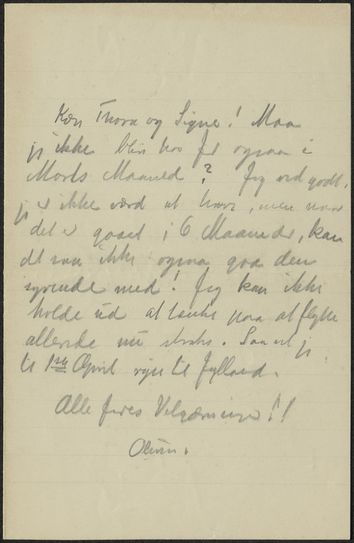 Kære Thora og Signe! Maa
jeg ikke blive hos Jer ogsaa i
Marts Maaned? Jeg ved godt,
jeg er ikke værd at have, men naar
det er gaaet i 6 Maaneder, kan
det saa ikke ogsaa gaa den
syvende med! Jeg kan ikke
holde ud at tænke paa at flytte
allerede nu straks. Saa vil jeg
til 1ste April rejse til Jylland.
Alle Jeres Velgerninger!!